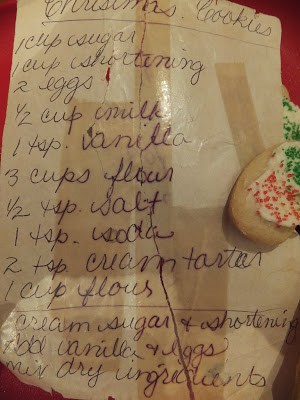 Christmas Cookies
1 cup sugar
1 cup shortening
2 eggs
1/2 cup milk
1 tsp. vanilla
3 cups flour
1/2 tsp. salt
1 tsp. soda
2 tsp. cream tartar
1 cup flour
cream sugar & shortening
add vanilla & eggs
mix dry ingredients